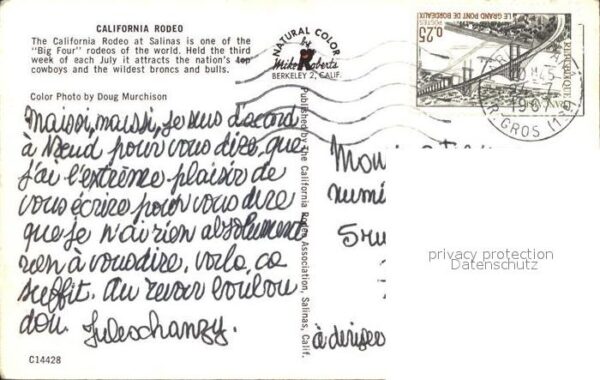 CALIFORNIA RODEO
The California Rodeo at Salinas is one of the
"Big Four" rodeos of the world. Held the third
week of each July it attracts the nation's top
cowboys and the wildest broncs and bulls.
Color Photo by Doug Murchison
NATURAL COLOR
by
Mike Roberts
BERKELEY 2, CALIF.
0,25
POSTES
LE GRAND PONT DE BORDEAUX
REPUBLIQUE
1967
R. GROS
Maissi, maissi, je suis d'acord
à pour vous dire, que
j'ai l'extrême plaisir de
vous écrire pour vous dire
que je n'ai rien absolument
rien à vous dire, voila, ca
suffit. au revoir loulou
dou. Juleschanzy.
Published by The California Rodeo Association, Salinas, Calif.
à
privacy protection
Datenschutz
C14428